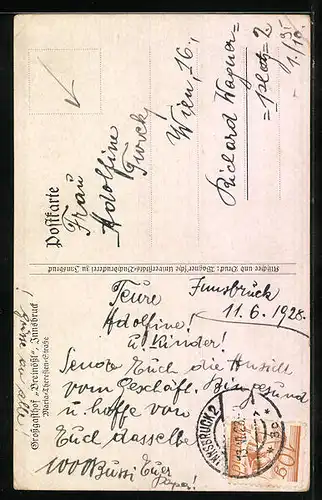 Postkarte
Frau
Adolfine
Turek
Wien, 16.,
Richard Wagner=
=platz 2
Großgasthof „Breinößl", Innsbruck
Maria-Theresien-Straße
Klischee und Druck: Wagner'sche Universitäts-Buchdruckerei in Innsbruck
Innsbruck
11.6.1928.
Teure
Adolfine!
u. Kinder!
Sende Euch die Ansicht
vom Geschäft. Bin gesund
u. hoffe von
Euch dasselbe
1000 Bussi Euer
Papa!
Grüße an alle!
INNSBRUCK 2